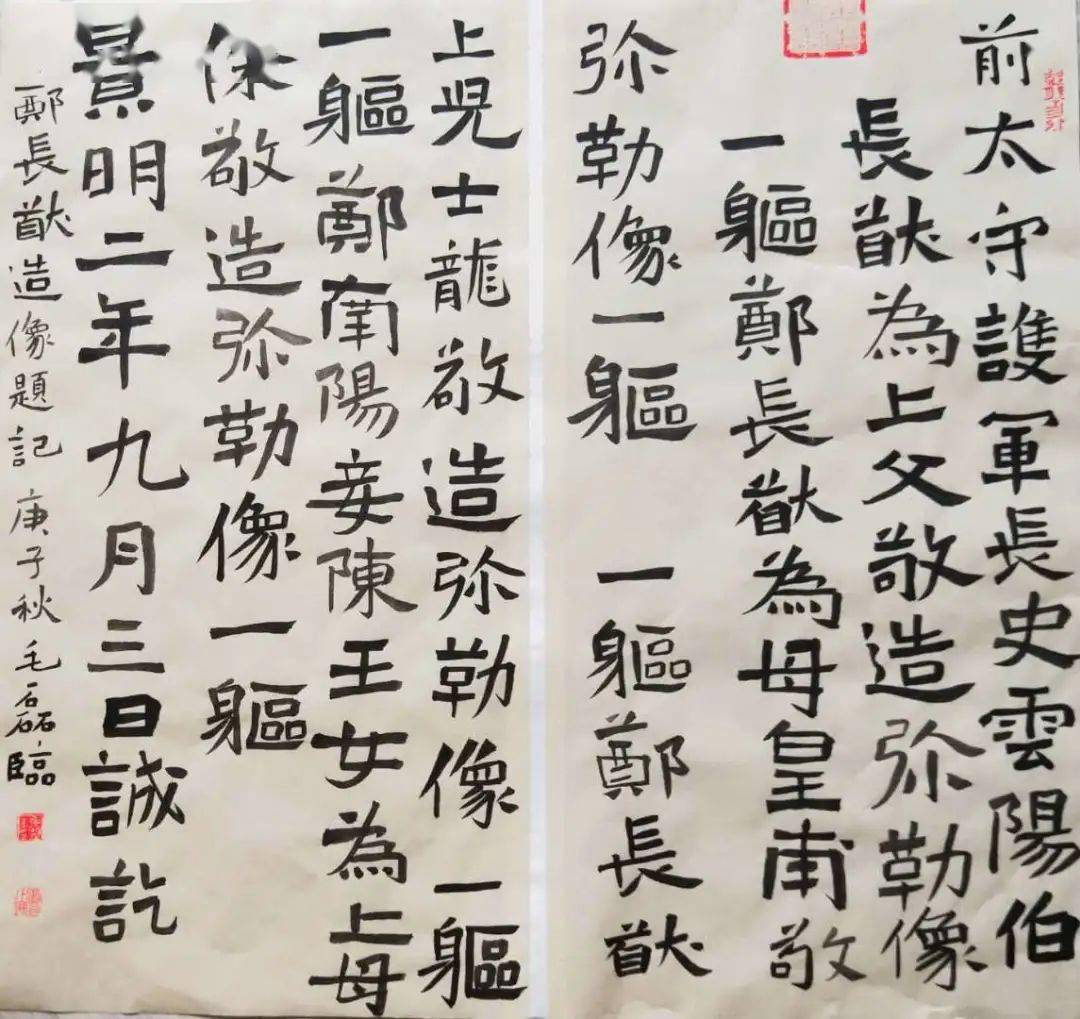 前太守護軍長史雲陽伯
長猷為上父敬造弥勒像
一軀鄭長猷為母皇甫敬
弥勒像一軀 一軀鄭長猷
上児士龍敬造弥勒像一軀
一軀鄭南陽妾陳王女為上母
徐敬造弥勒像一軀
景明二年九月三日誠訖
鄭長猷造像題記 庚子秋毛磊臨